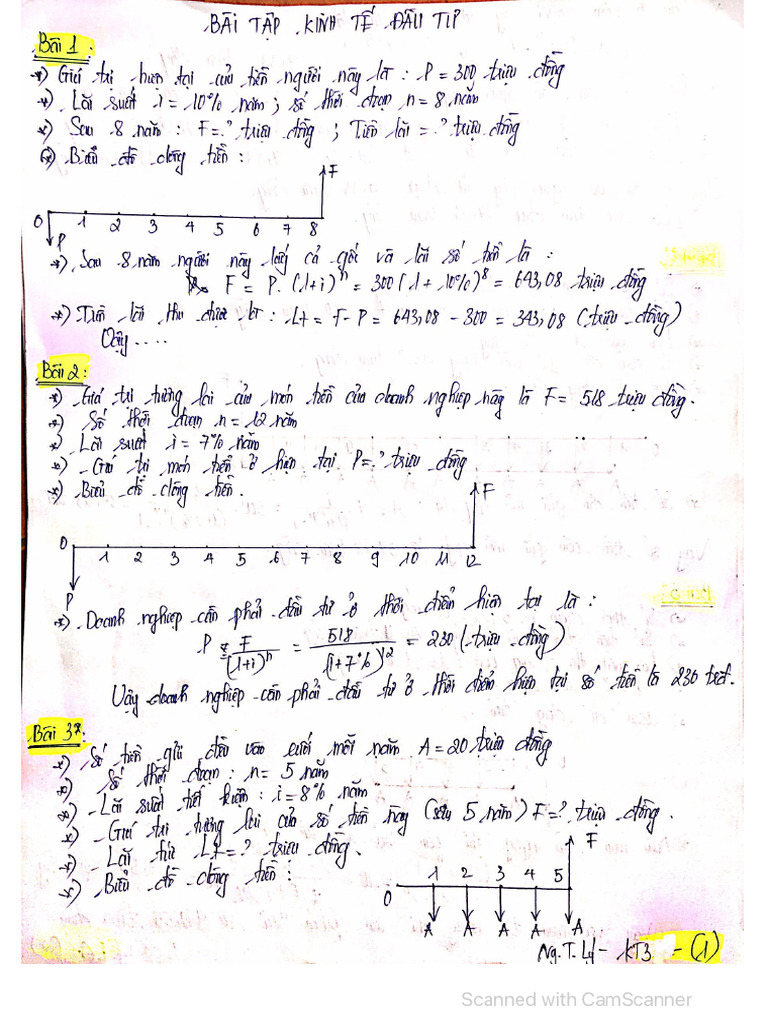 BÀI TẬP KINH TẾ ĐẦU TƯ
Bài 1:
*) Giá trị hiện tại của tiền người này là : P = 300 triệu đồng
*) Lãi suất i = 10% năm ; số thời đoạn n = 8 năm
*) Sau 8 năm : F = ? triệu đồng ; Tiền lãi = ? triệu đồng
*) Biểu đồ dòng tiền :
F
0 1 2 3 4 5 6 7 8
P
*) Sau 8 năm người này lấy cả gốc và lãi số tiền là :
F = P. (1+i)^n = 300 (1 + 10%)^8 = 643,08 triệu đồng
*) Tiền lãi thu được là : Lt = F - P = 643,08 - 300 = 343,08 (triệu đồng)
Vậy ....
Bài 2:
*) Giá trị tương lai của món tiền của doanh nghiệp này là F = 518 triệu đồng.
*) Số thời đoạn n = 12 năm
*) Lãi suất i = 7% năm
*) Giá trị món tiền ở hiện tại P = ? triệu đồng
*) Biểu đồ dòng tiền.
F
0 1 2 3 4 5 6 7 8 9 10 11 12
P
*) Doanh nghiệp cần phải đầu tư ở thời điểm hiện tại là :
P = F/(1+i)^n = 518/(1+7%)^12 = 230 (triệu đồng)
Vậy doanh nghiệp cần phải đầu tư ở thời điểm hiện tại số tiền là 230 trđ.
Bài 3*:
*) Số tiền gửi đều vào cuối mỗi năm A = 20 triệu đồng
*) Số thời đoạn : n = 5 năm
*) Lãi suất tiết kiệm : i = 8% năm
*) Giá trị tương lai của số tiền này (sau 5 năm) F = ? triệu đồng.
*) Lãi tức Lt = ? triệu đồng.
*) Biểu đồ dòng tiền :
F
0 1 2 3 4 5
A A A A A
Ng.T. Lý - KT3 - (1)
Scanned with CamScanner